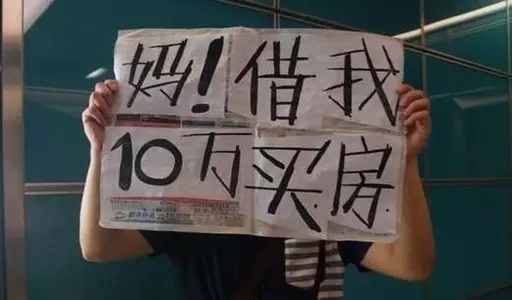 妈!借我
10万买房